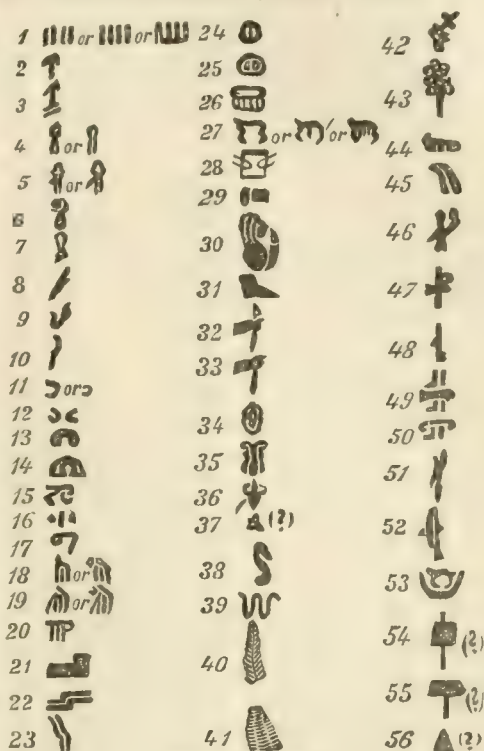 1 or or
2
3
4 or
5 or
6
7
8
9
10
11 or
12
13
14
15
16
17
18 or
19 or
20
21
22
23
24
25
26
27 or or
28
29
30
31
32
33
34
35
36
37 (?)
38
39
40
41
42
43
44
45
46
47
48
49
50
51
52
53
54 (?)
55 (?)
56 (?)